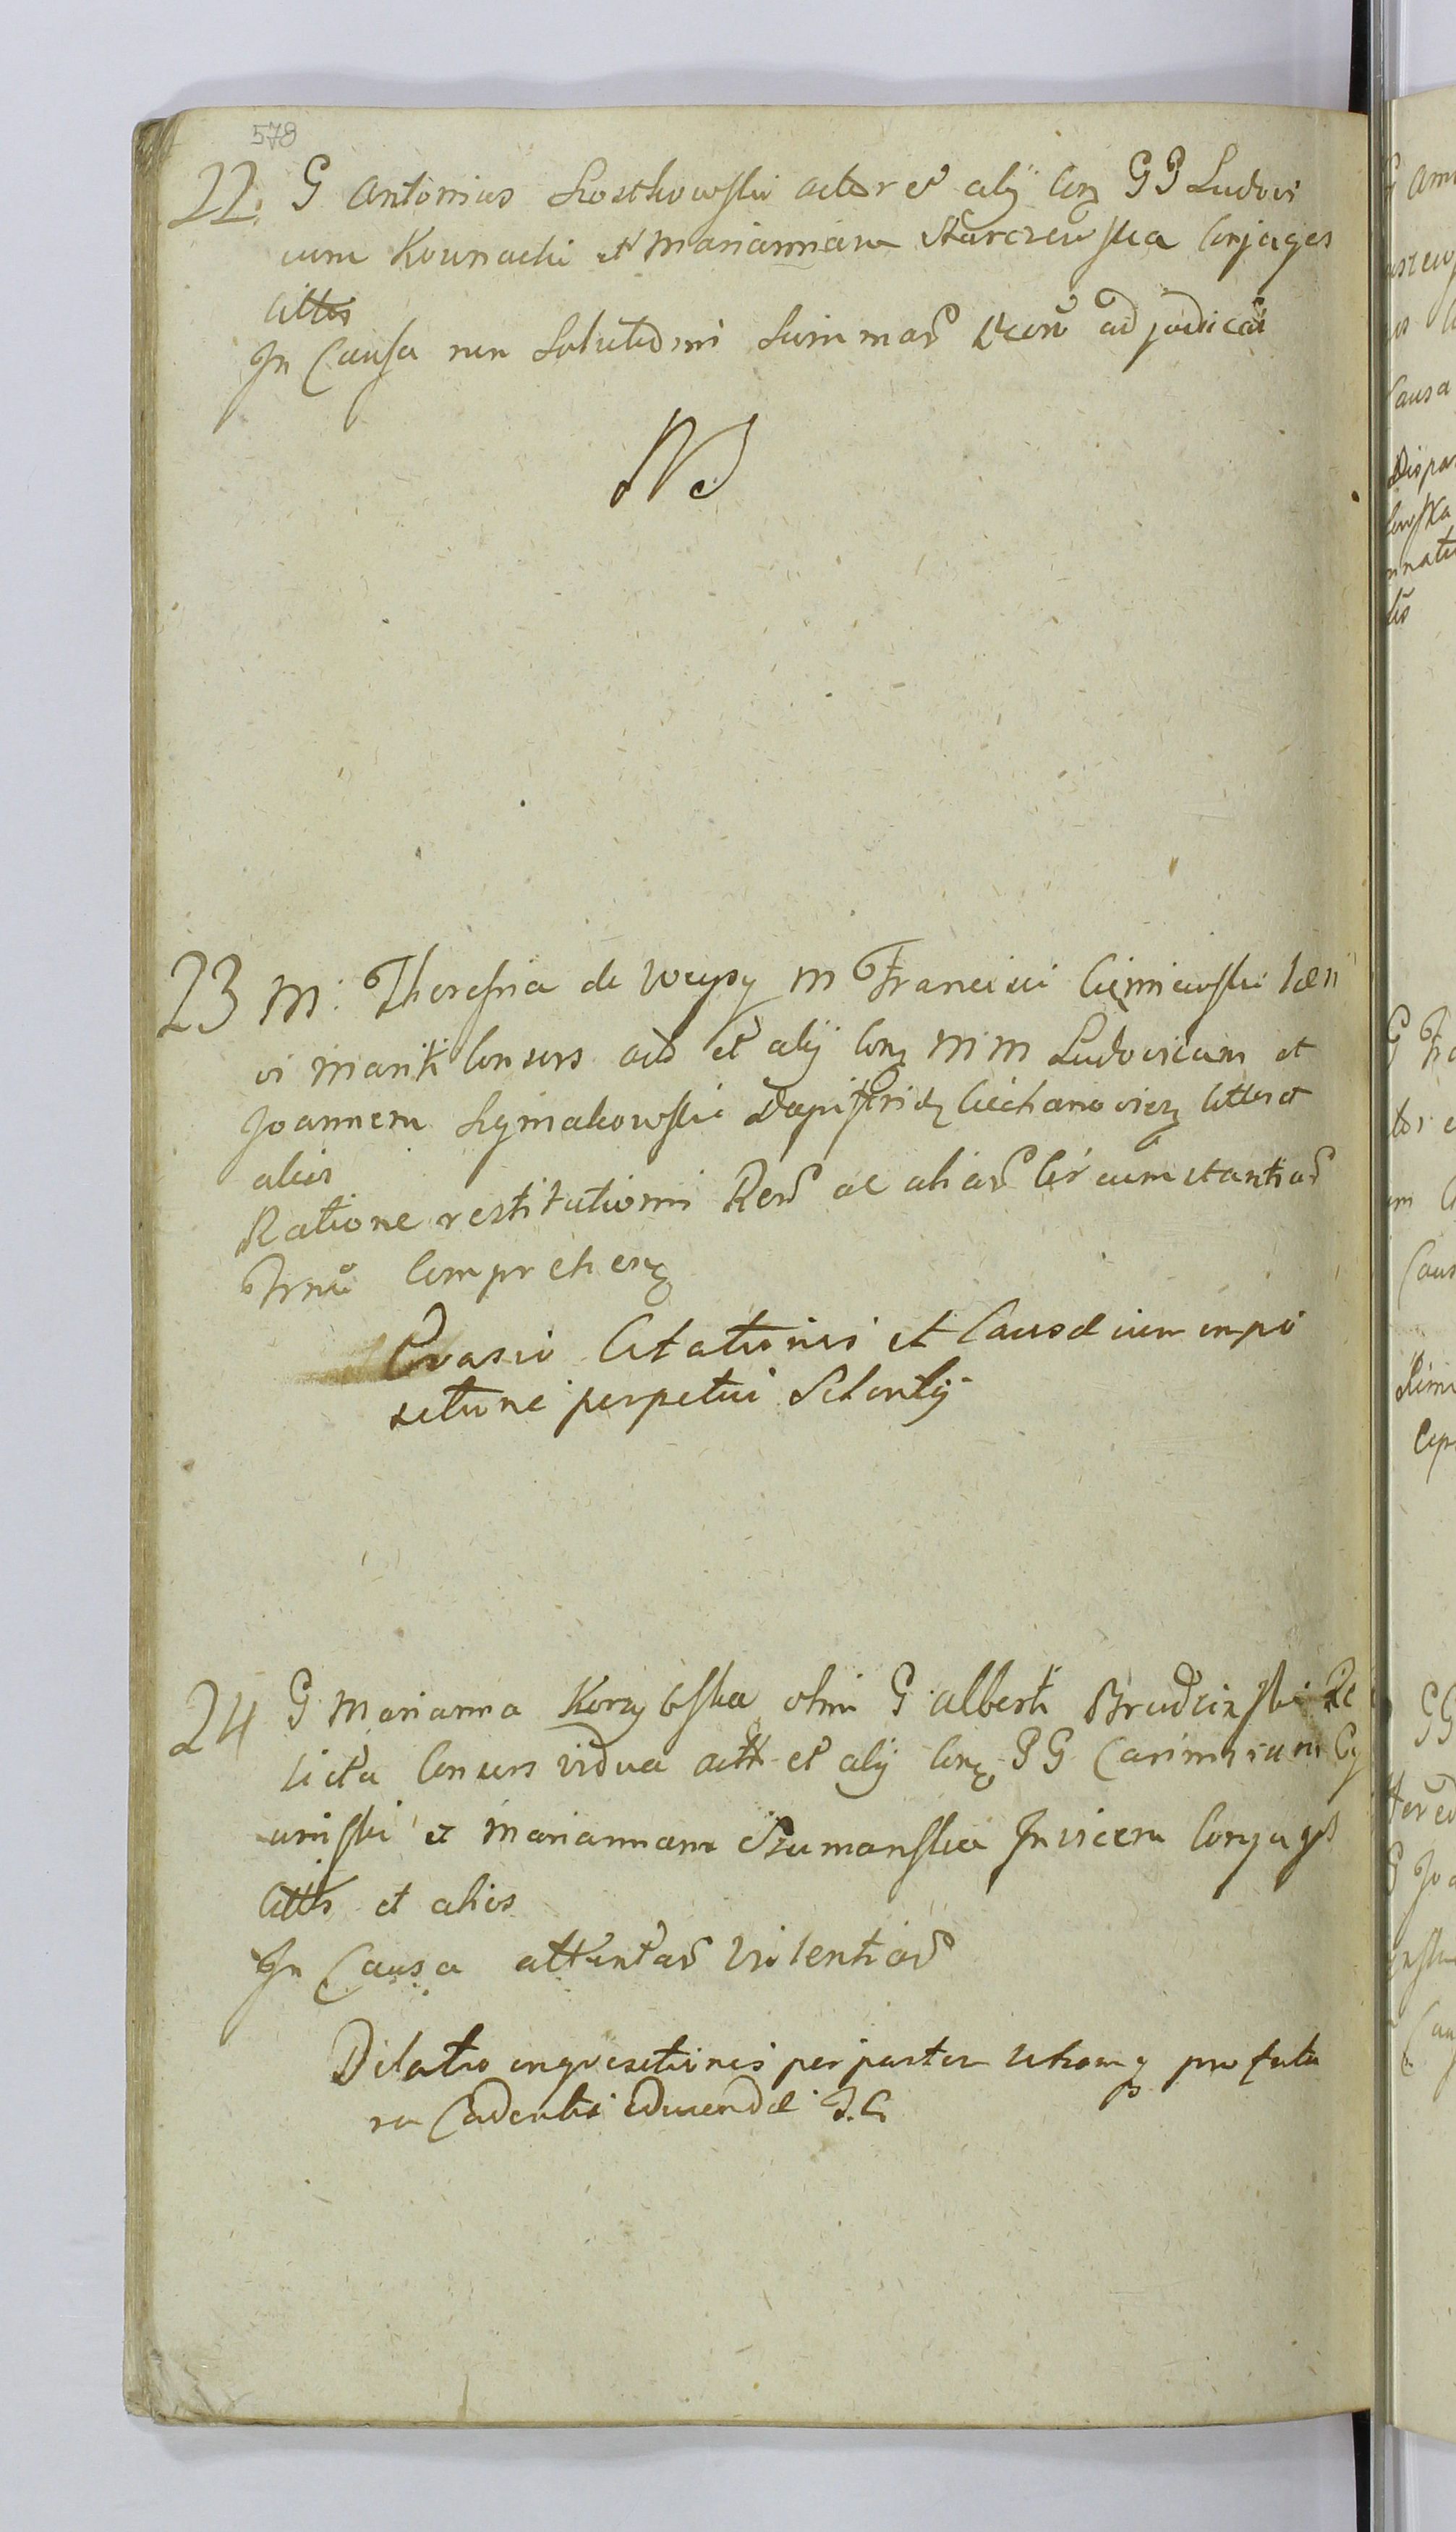 578
22. G Antonius Kostkowski actor et alij con GG Ludovi
cum Kownacki et Mariannam Starczewska Conjuges
Cittos
In Causa non Solutionis Summar adjudicat
NS
23 M. Theresia de M Francisci Ciemiewski
vi mariti Consors act et alij con MM Ludovicum et
Joannem Szymakowskie Dapiferid Ciechanovien Cittos et
alios
Ratione restitutionis Rer ac aliar Circumstantiar
Trnu Comprehen
Evasio Citationis et Causæ cum impo
sitione perpetui Silentij
24 G Marianna Korzybska olim G Alberti Brudzinski Re
licta Consors vidua act et alij con GG Casimirum Cy
winski et Mariannam Szumanska Invicem Conjuges
Cittos et alios
In Causa attentar Violentiar
Dilatio inqvisitionis per partem utramq pro futu
ra Cadentia educendæ